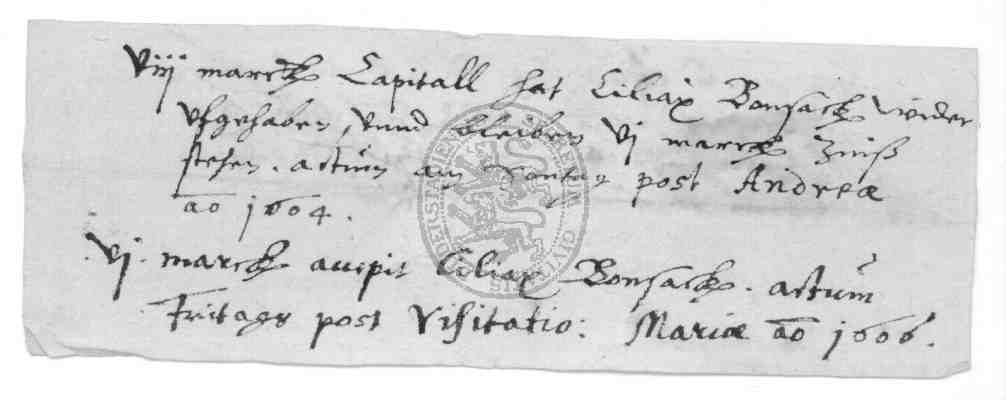 viij marck Capitall hat Ciliax Bonsack wider
vfgehaben, vnnd bleiben vj marck Zinß
stehen. actum am Sontag post Andreæ
ao 1604.
vj. marck accepit Ciliax Bonsack. actum
Fritags post Visitatio: Mariæ ao 1606.